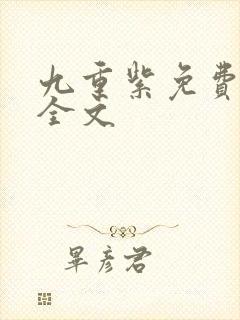 九重紫免费
全文
畢彦君